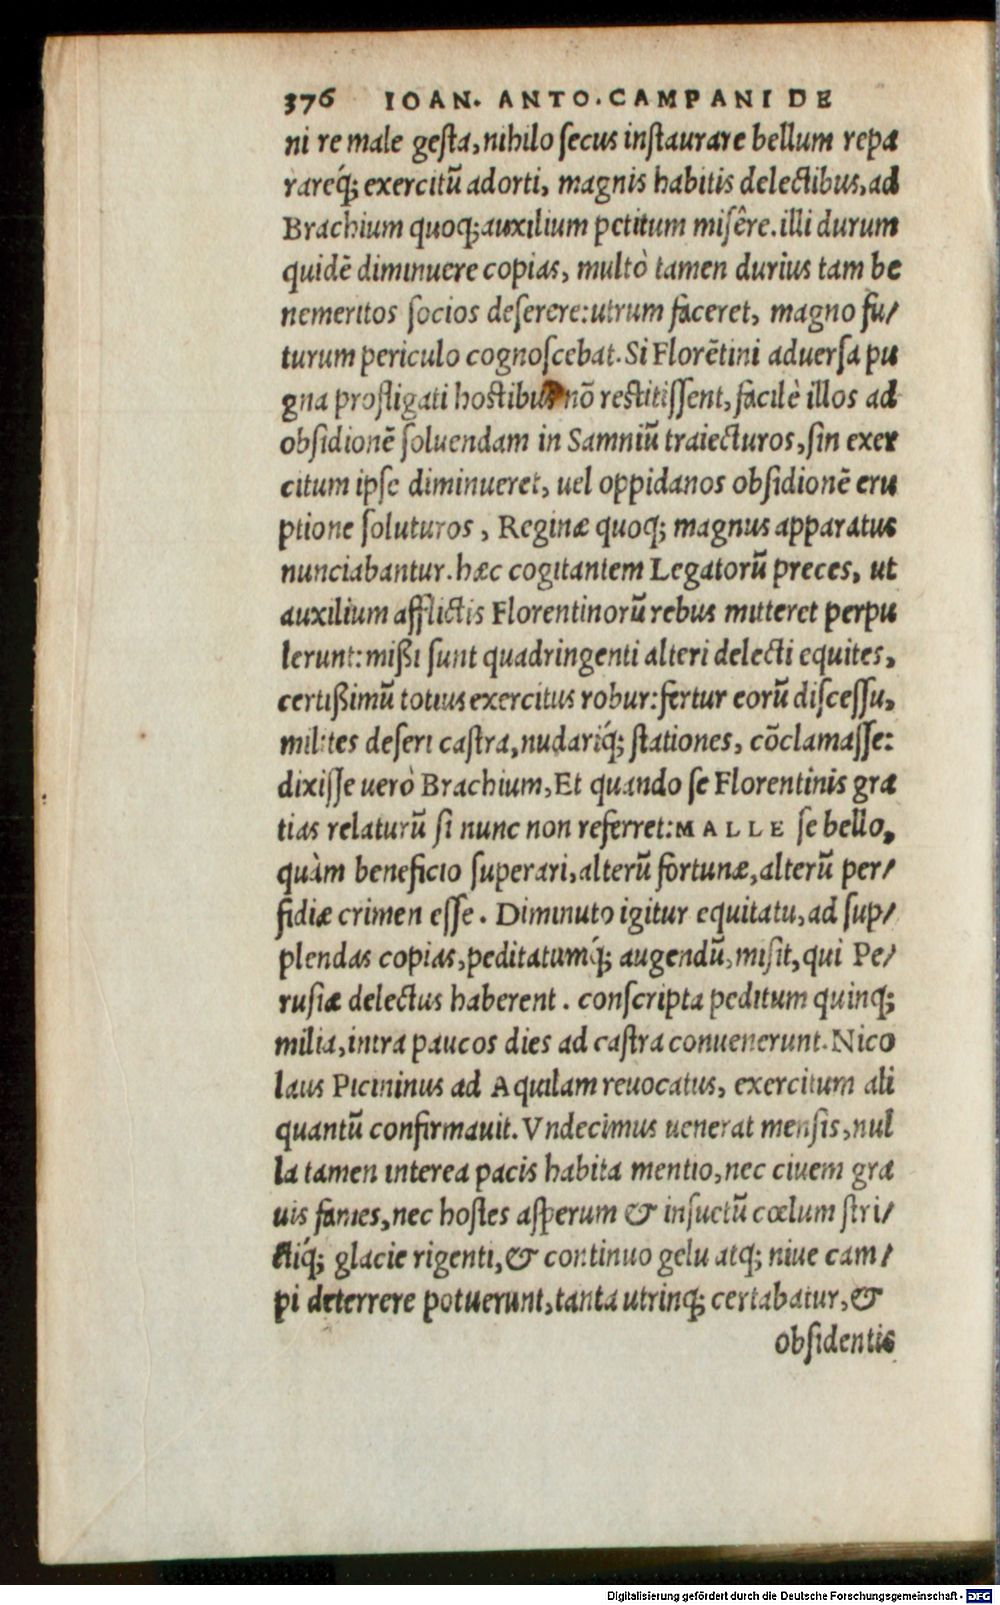 376 IOAN. ANTO. CAMPANI DE
ni re male gesta, nihilo secus instaurare bellum repa
rareq́; exercitũ adorti, magnis habitis delectibus, ad
Brachium quoq; auxilium petitum misêre. illi durum
quidē diminuere copias, multò tamen durius tam be
nemeritos socios deserere: utrum faceret, magno fu/
turum periculo cognoscebat. Si Florētini aduersa pu
gna profligati hostibus nō restitissent, facilè illos ad
obsidionē soluendam in Samniũ traiecturos, sin exer
citum ipse diminueret, uel oppidanos obsidionē eru
ptione soluturos, Reginæ quoq; magnus apparatus
nunciabantur. hæc cogitantem Legatorũ preces, ut
auxilium afflictis Florentinorũ rebus mitteret perpu
lerunt: mißi sunt quadringenti alteri delecti equites,
certißimũ totius exercitus robur: fertur eorũ discessu,
milites deseri castra, nudariq́; stationes, cōclamasse:
dixisse uerò Brachium, Et quando se Florentinis gra
tias relaturũ si nunc non referret: MALLE se bello,
quàm beneficio superari, alterũ fortunæ, alterũ per/
fidiæ crimen esse. Diminuto igitur equitatu, ad sup/
plendas copias, peditatumq́; augendũ, misit, qui Pe/
rusiæ delectus haberent. conscripta peditum quinq;
milia, intra paucos dies ad castra conuenerunt. Nico
laus Picininus ad Aquilam reuocatus, exercitum ali
quantũ confirmauit. Vndecimus uenerat mensis, nul
la tamen interea pacis habita mentio, nec ciuem gra
uis fames, nec hostes asperum & insuetũ cœlum stri/
ctiq́; glacie rigenti, & continuo gelu atq; niue cam/
pi deterrere potuerunt, tanta utrinq; certabatur, &
obsidentis
Digitalisierung gefördert durch die Deutsche Forschungsgemeinschaft - DFG